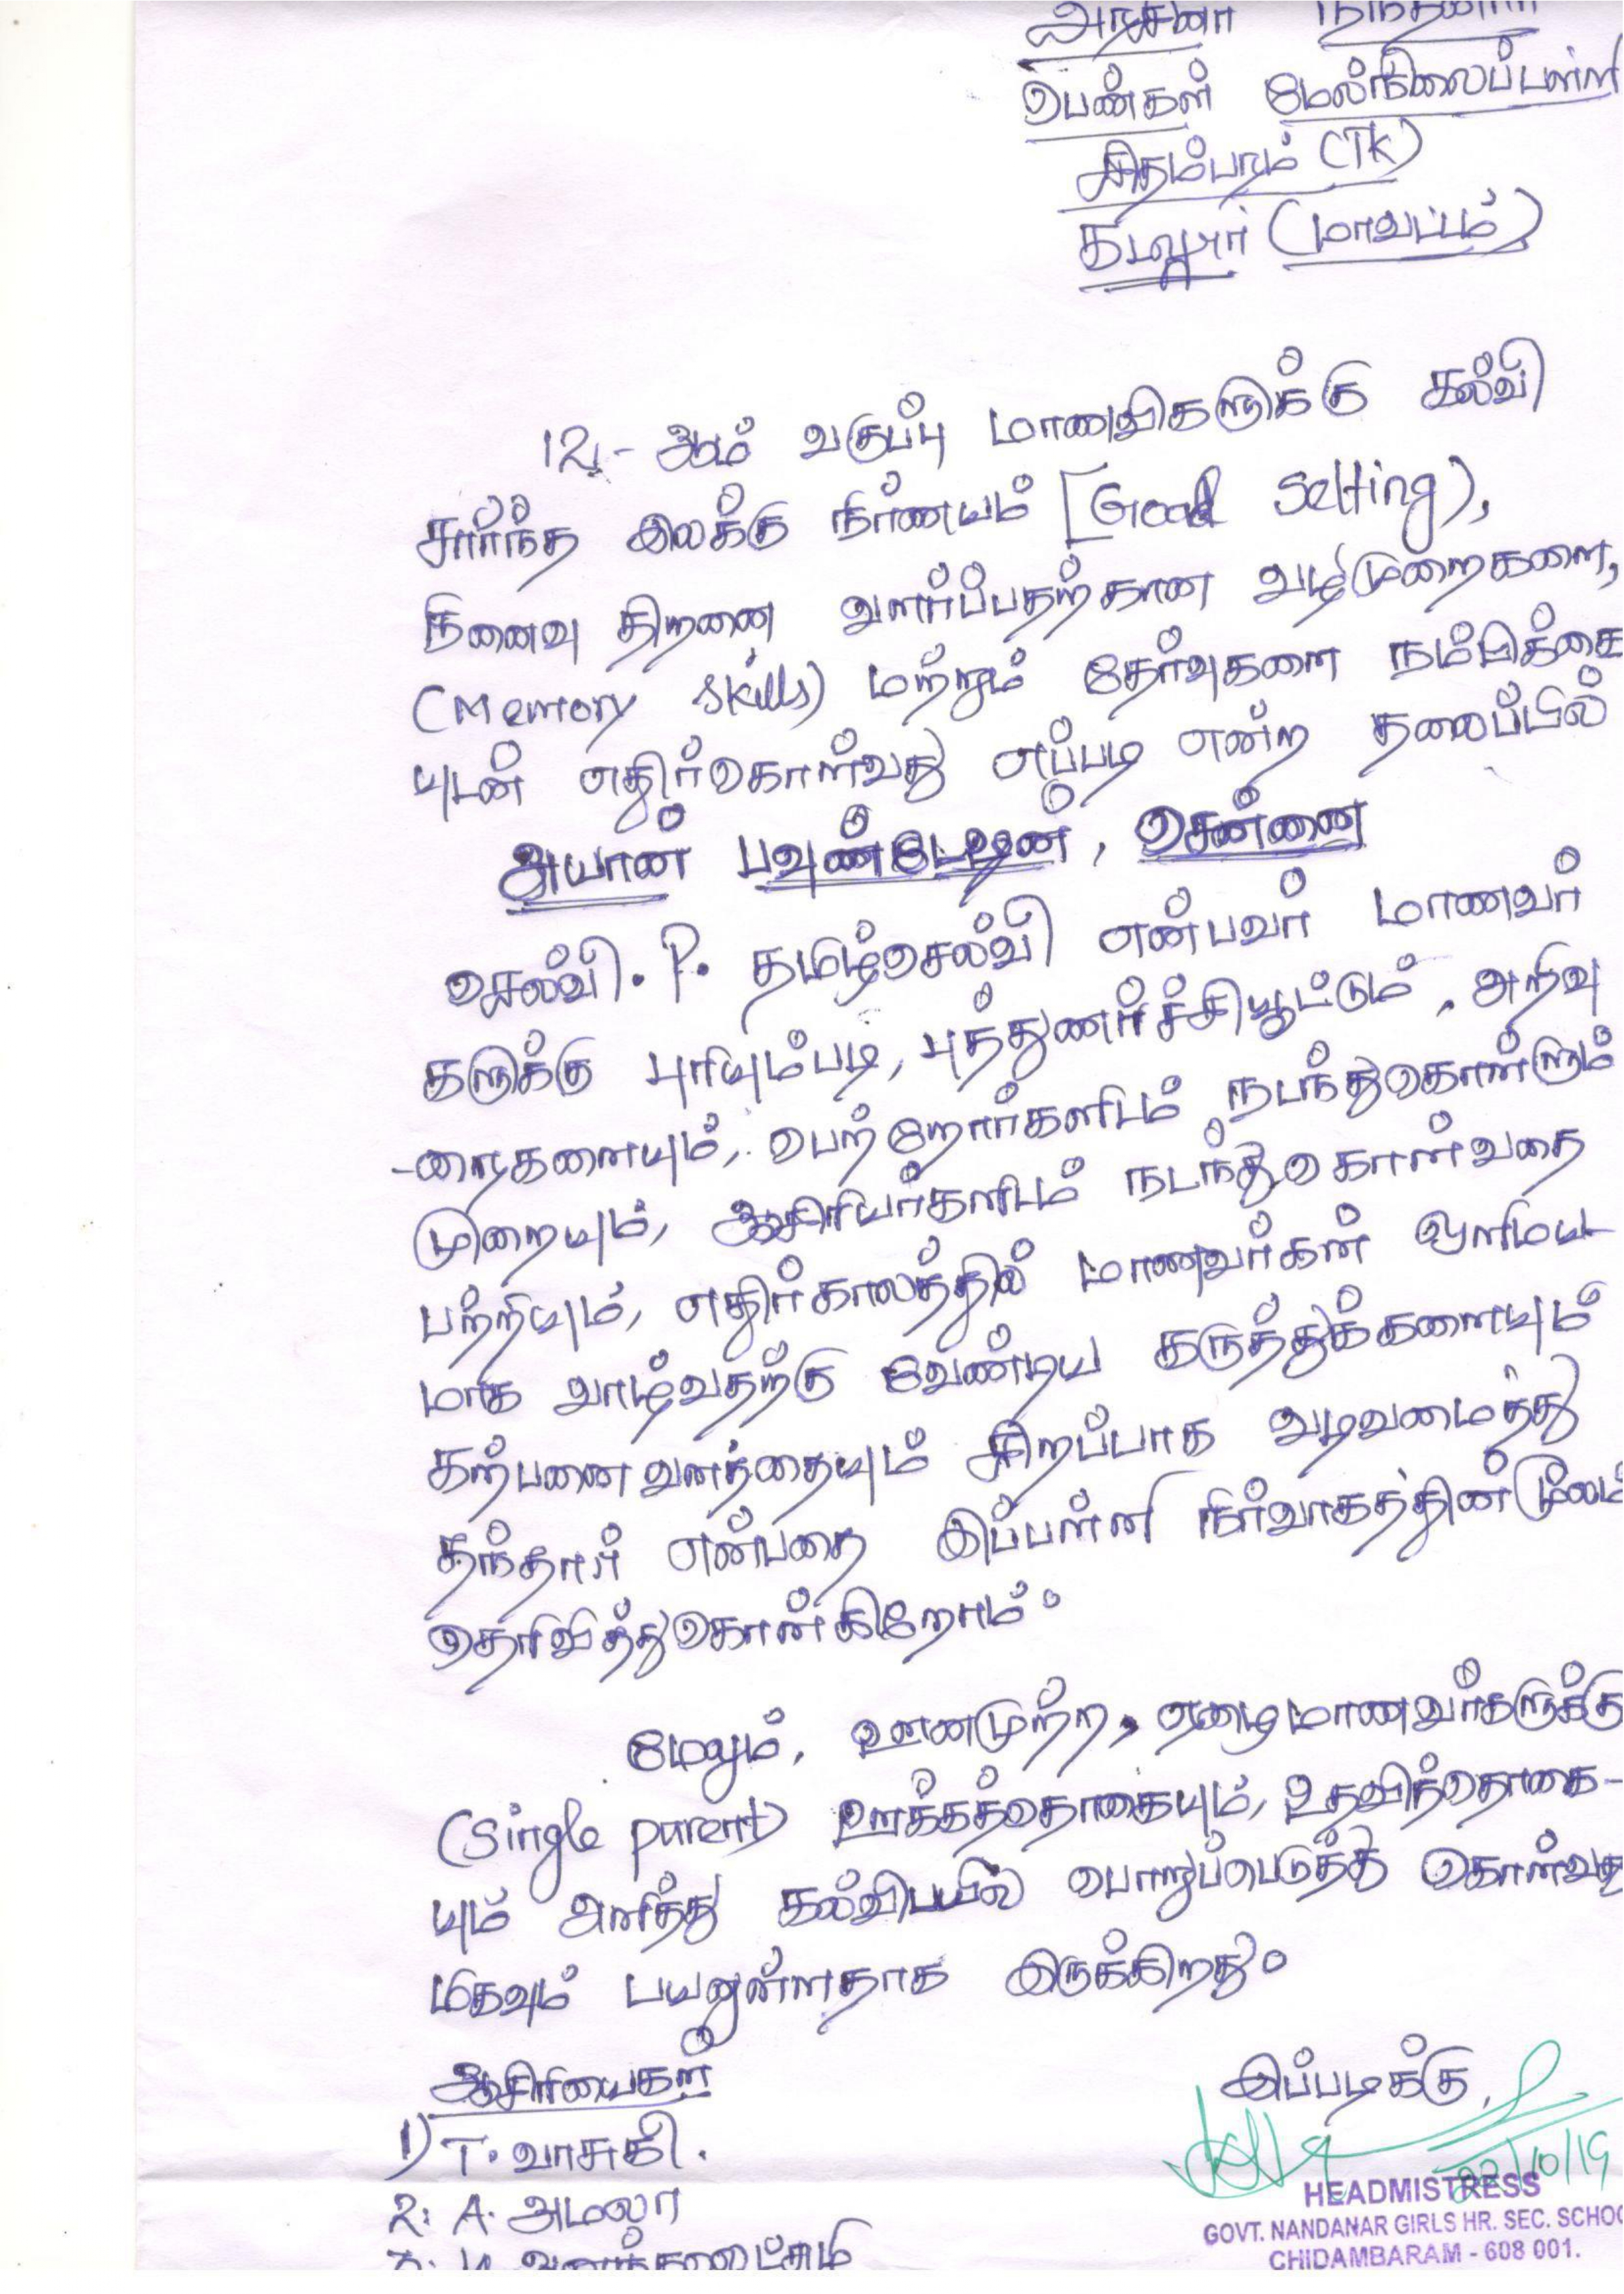 அரசினர் நந்தனார்
பெண்கள் மேல்நிலைப்பள்ளி
சிதம்பரம் (TK)
கடலூர் (மாவட்டம்)
12 - ஆம் வகுப்பு மாணவிகளுக்கு கல்வி
சார்ந்த இலக்கு நிர்ணயம் [Goal Setting),
நினைவு திறனை வளர்ப்பதற்கான வழிமுறைகளை,
(Memory Skills) மற்றும் தேர்வுகளை நம்பிக்கை
யுடன் எதிர்கொள்வது எப்படி என்ற தலைப்பில்
அயான் பவுண்டேஷன், சென்னை
செல்வி. P. தமிழ்செல்வி என்பவர் மாணவர்
களுக்கு புரியும்படி, புத்துணர்ச்சியூட்டும், அறிவு
-ரைகளையும், பெற்றோர்களிடம் நடந்துகொள்ளும்
முறையும், ஆசிரியர்களிடம் நடந்துகொள்வதை
பற்றியும், எதிர்காலத்தில் மாணவர்கள் ஒளிமய
மாக வாழ்வதற்கு வேண்டிய கருத்துக்களையும்
கற்பனை வளத்தையும் சிறப்பாக வடிவமைத்து
தந்தார் என்பதை இப்பள்ளி நிர்வாகத்தின் மூலம்
தெரிவித்துகொள்கிறோம்.
மேலும், ஊனமுற்ற, ஏழைமாணவர்களுக்கு
(Single parent) ஊக்கத்தொகையும், உதவித்தொகை-
யும் அளித்து கல்விபயில பொறுப்பெடுத்து கொள்வது
மிகவும் பயனுள்ளதாக இருக்கிறது.
ஆசிரியைகள்
இப்படிக்கு,
1) T. வாசுகி.
22/10/19
2. A. அமலா
HEADMISTRESS
GOVT. NANDANAR GIRLS HR. SEC. SCHOO
CHIDAMBARAM - 608 001.